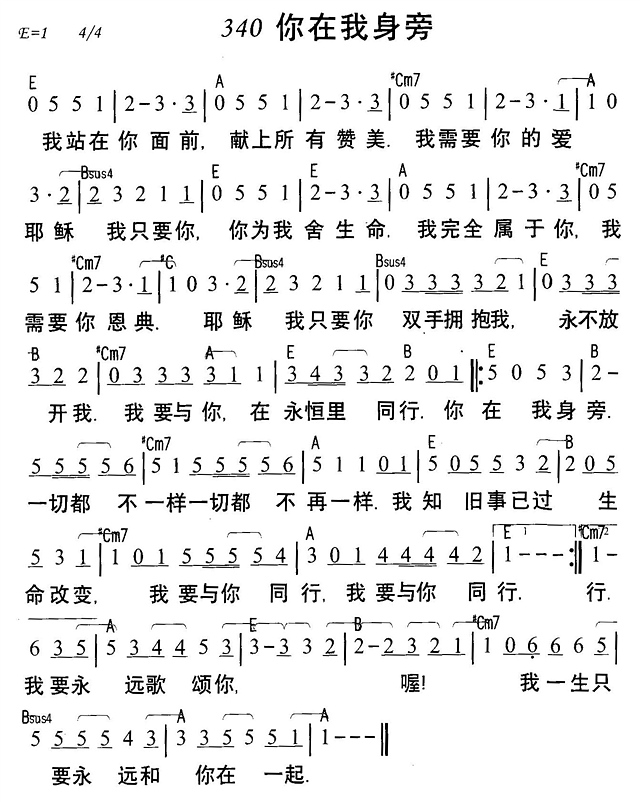 E=1 4/4 340 你在我身旁
E A #Cm7 A
0 5 5 1 | 2 - 3 · 3 | 0 5 5 1 | 2 - 3 · 3 | 0 5 5 1 | 2 - 3 · 1 | 1 0
我站在你面前, 献上所有赞美. 我需要你的爱
Bsus4 E E A #Cm7
3 · 2 | 2 3 2 1 1 | 0 5 5 1 | 2 - 3 · 3 | 0 5 5 1 | 2 - 3 · 3 | 0 5
耶稣 我只要你, 你为我舍生命. 我完全属于你, 我
#Cm7 #C Bsus4 Bsus4 E
5 1 | 2 - 3 · 1 | 1 0 3 · 2 | 2 3 2 1 1 | 0 3 3 3 2 2 1 | 0 3 3 3
需要你恩典. 耶稣 我只要你 双手拥抱我, 永不放
B #Cm7 A E B E B
3 2 2 | 0 3 3 3 3 1 1 | 3 4 3 3 2 2 0 1 |: 5 0 5 3 | 2 -
开我. 我要与你, 在永恒里 同行. 你在 我身旁.
#Cm7 A E B
5 5 5 5 6 | 5 1 5 5 5 5 6 | 5 1 1 0 1 | 5 0 5 5 3 2 | 2 0 5
一切都 不一样一切都 不再一样. 我知 旧事已过 生
#Cm7 A E 1 #Cm7 2
5 3 1 | 1 0 1 5 5 5 5 4 | 3 0 1 4 4 4 4 2 | 1 - - - :| 1 -
命改变, 我要与你 同行, 我要与你 同行. 行.
A E B #Cm7
6 3 5 | 5 3 4 4 5 3 | 3 - 3 3 2 | 2 - 2 3 2 1 | 1 0 6 6 6 5
我要永 远歌颂你, 喔! 我一生只
Bsus4 A A
5 5 5 5 4 3 | 3 3 5 5 5 1 | 1 - - - ||
要永 远和 你在 一起.